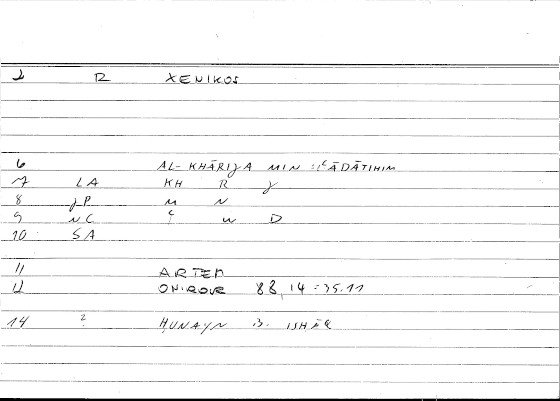 1 R XENIKOS
6 AL-KHĀRIJA MIN :ʿĀDĀTIHIM
7 LA KH R J
8 JP M N
9 NC ʿ W D
10 SA
11 ARTEM
12 ONIROCR 88,14 = 35.11
14 2 ḤUNAYN B. ISḤĀQ